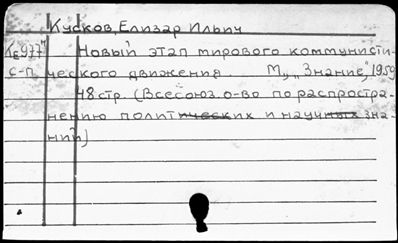 Кусков, Елизар Ильич
КЕ977 Новый этап мирового коммунисти-
с-п. ческого движения. М., "Знание", 1959
48 стр. (Всесоюз. о-во по распростра-
нению политических и научных зна-
ний)